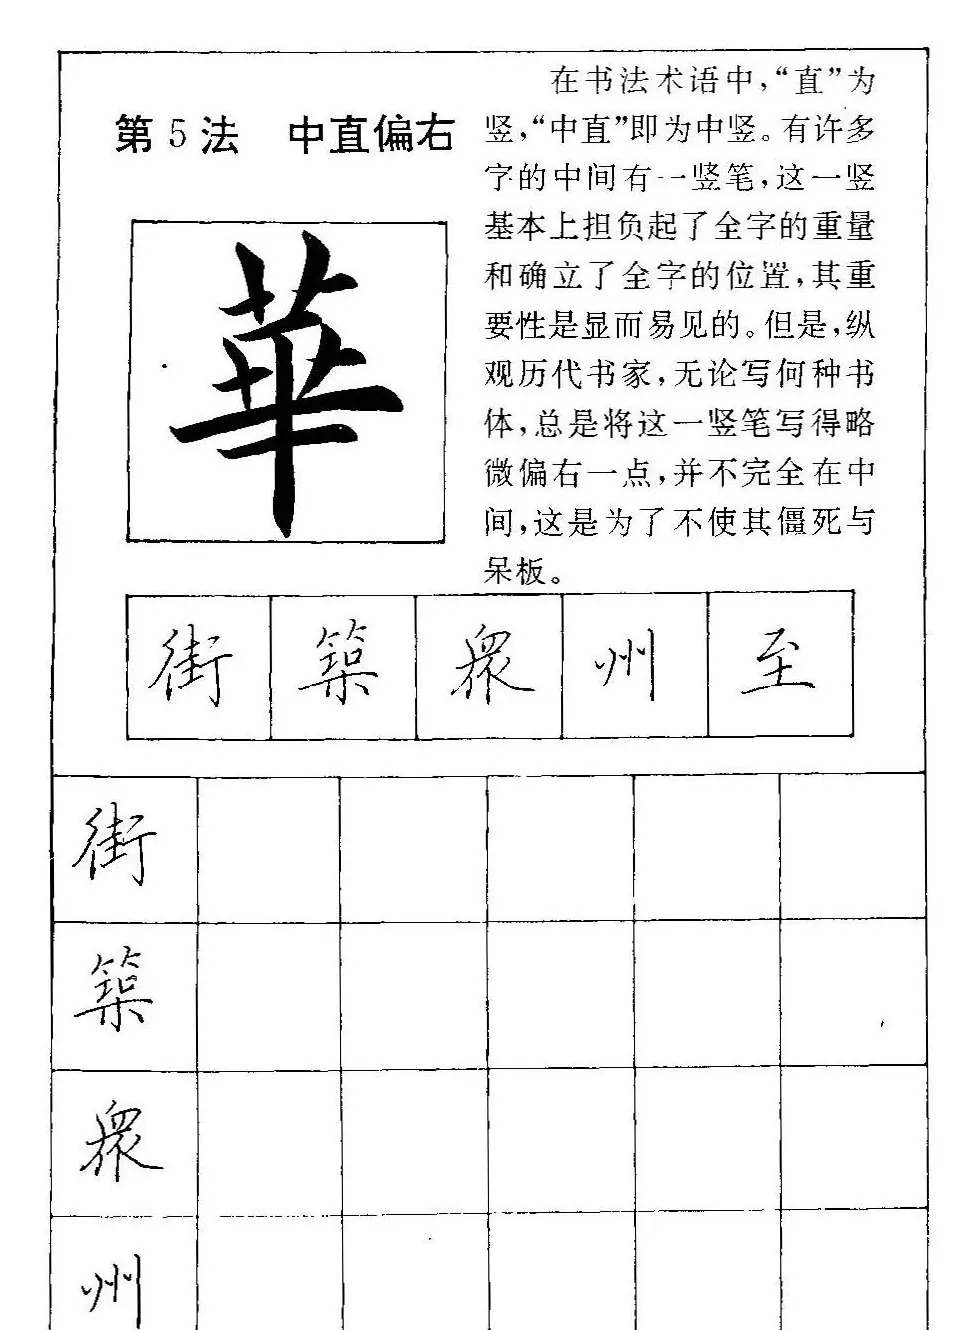 第5法 中直偏右
在书法术语中，“直”为
竖，“中直”即为中竖。有许多
字的中间有一竖笔，这一竖
基本上担负起了全字的重量
和确立了全字的位置，其重
要性是显而易见的。但是，纵
观历代书家，无论写何种书
体，总是将这一竖笔写得略
微偏右一点，并不完全在中
间，这是为了不使其僵死与
呆板。
華
街 築 眾 州 至
街
築
眾
州